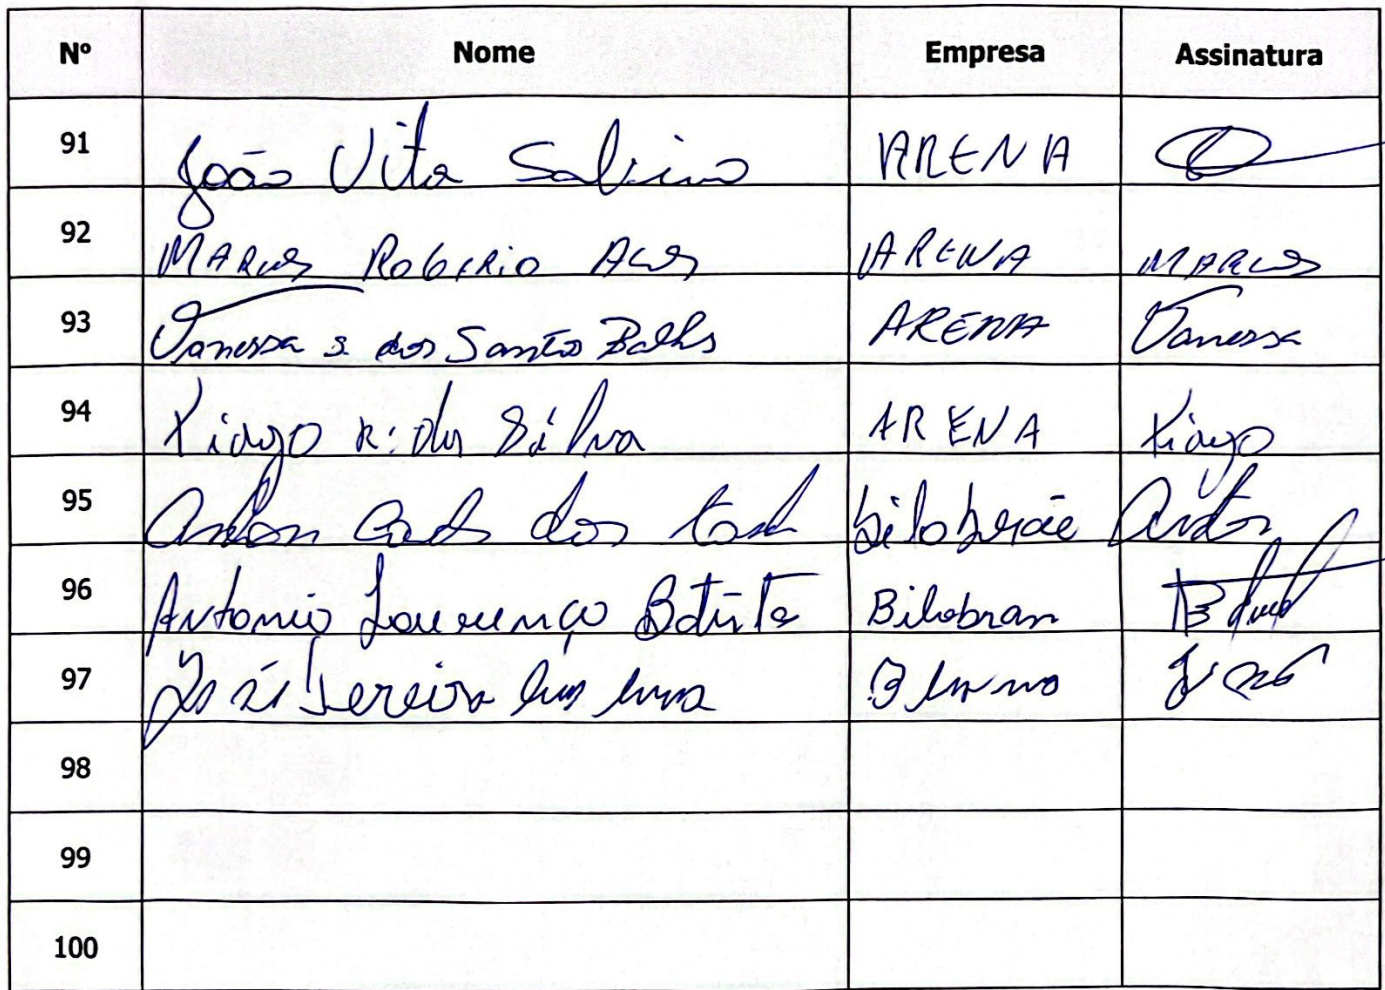 Nº Nome Empresa Assinatura
91 João Vito Salvino ARENA
92 MARCOS ROGERIO ARENA MARCOS
93 Vanessa S. dos Santos ARENA Vanessa
94 Tiago R. da Silva ARENA Tiago
95 dos
96 Antonio Lourenço Batista Bilobran
97 José Pereira José
98
99
100